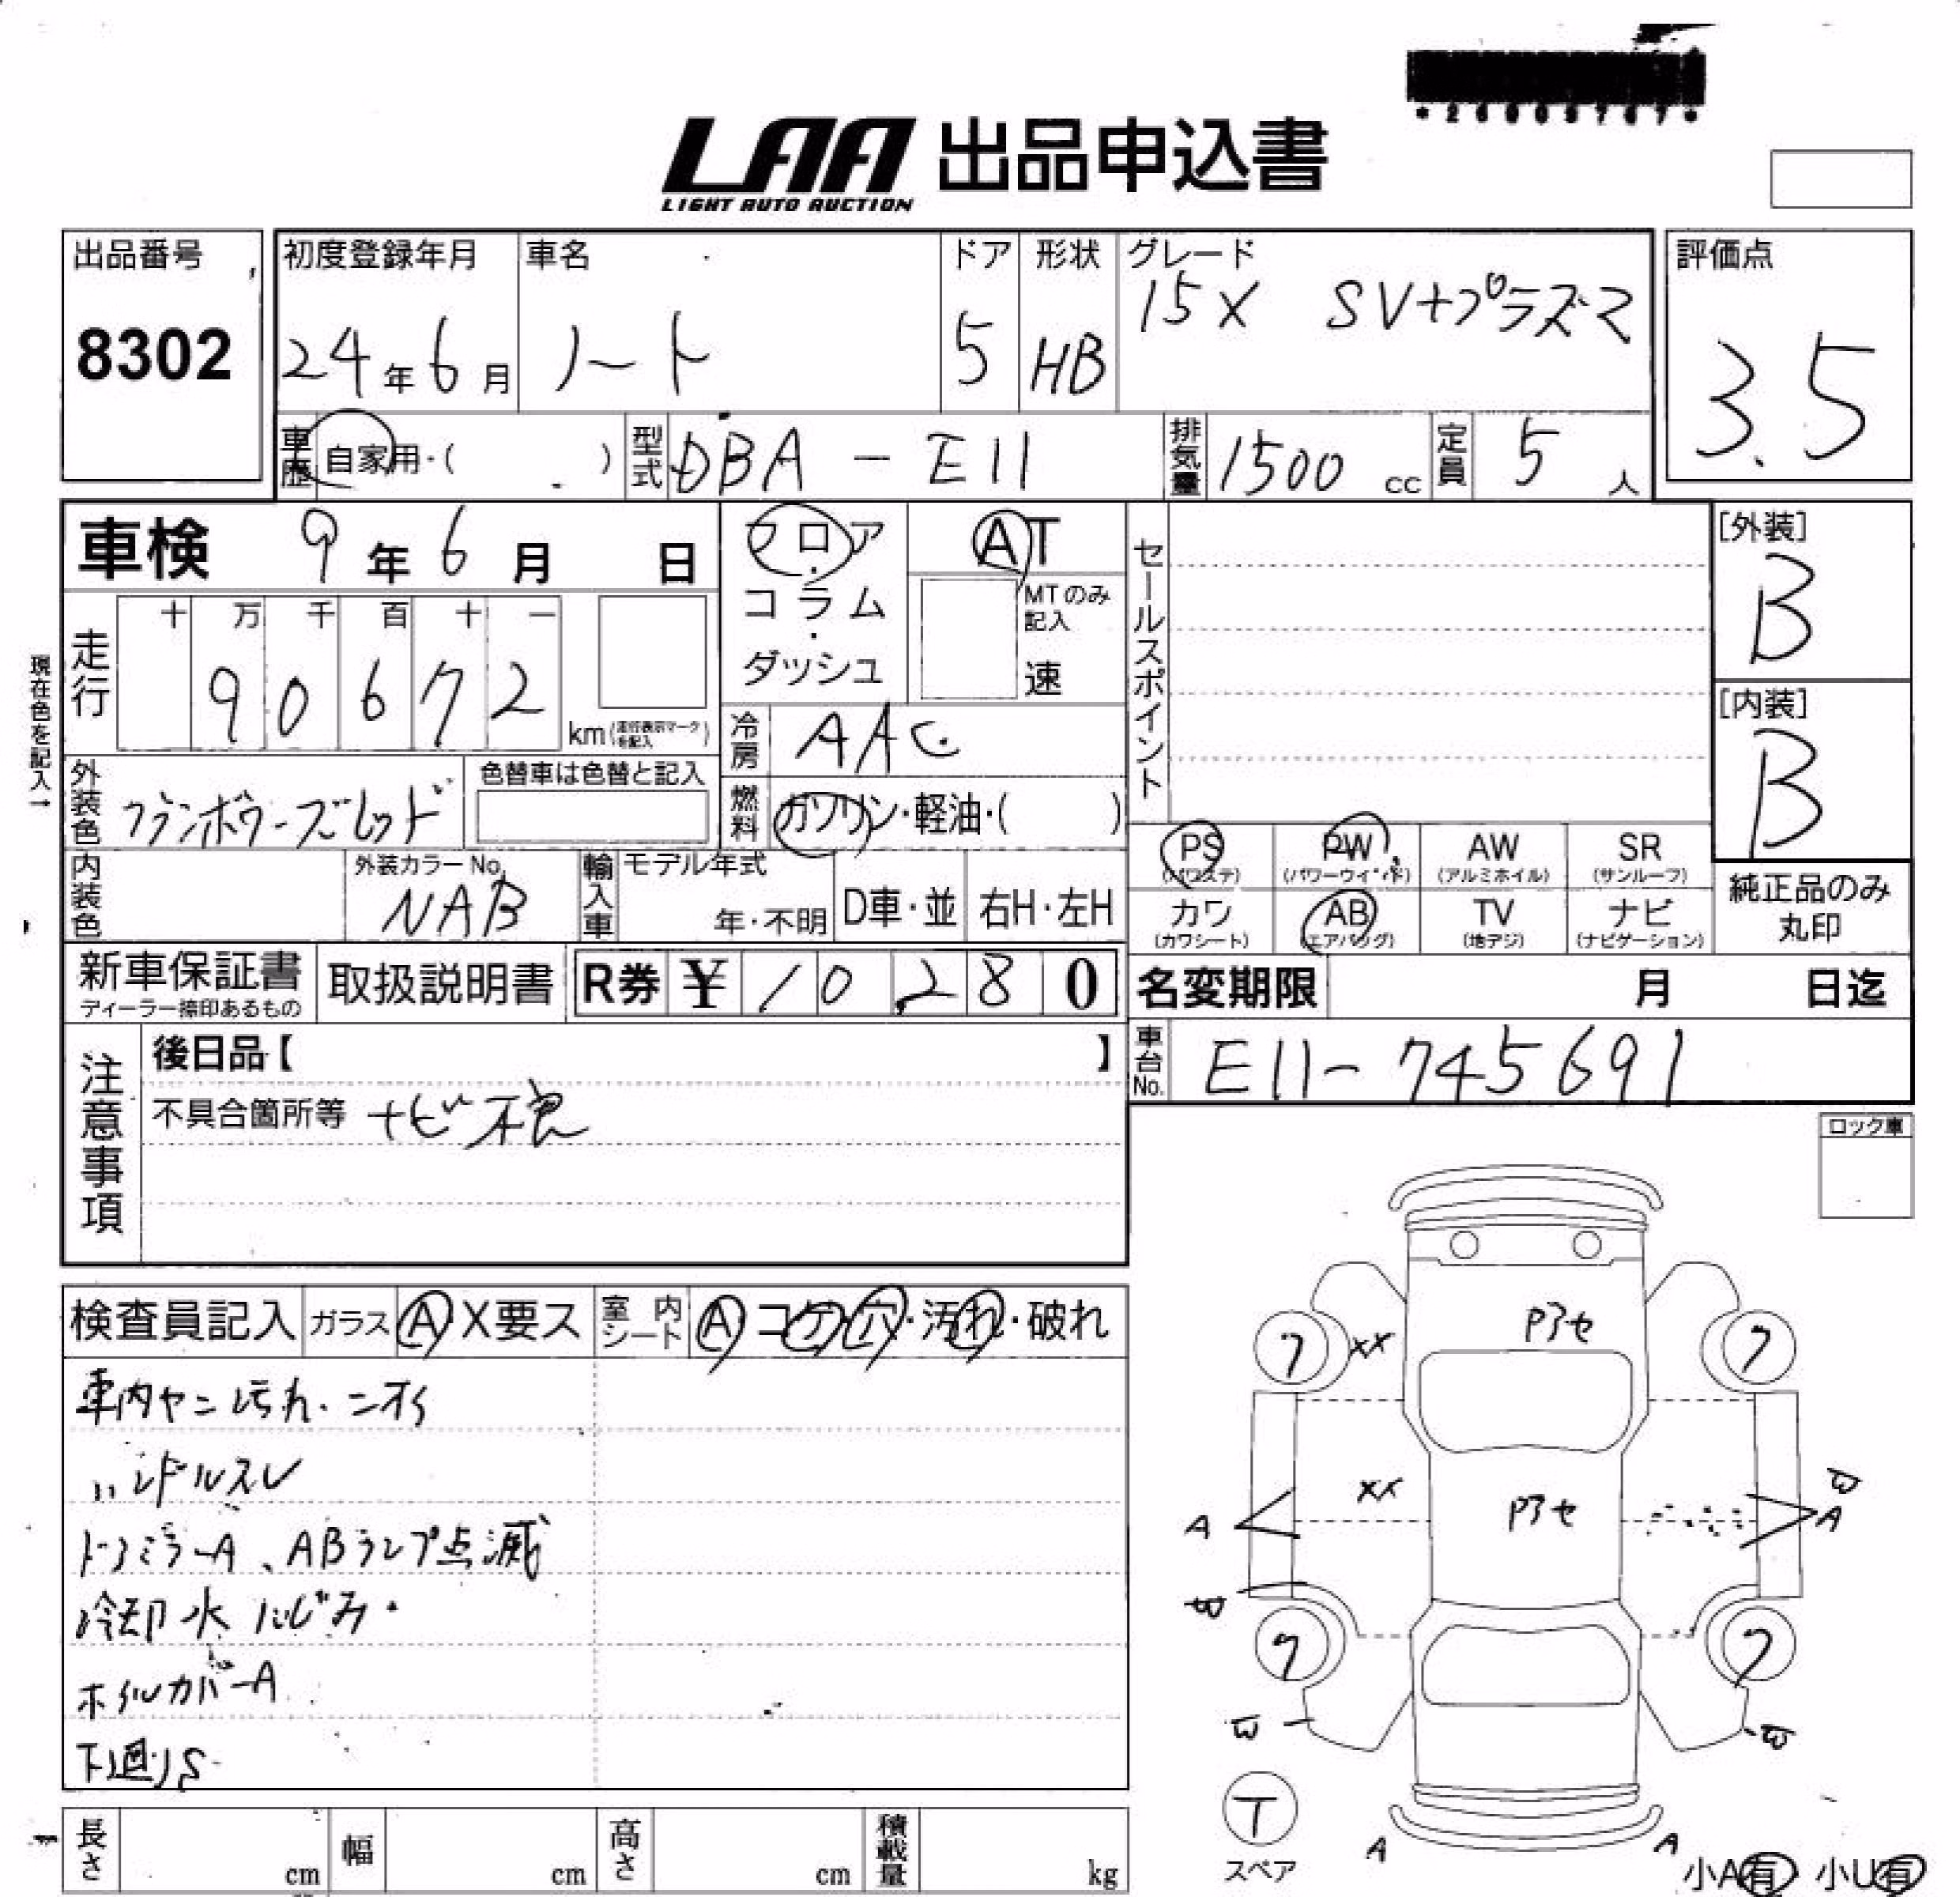 LAA 出品申込書
LIGHT AUTO AUCTION
出品番号
8302
初度登録年月
24年6月
車名
ノート
ドア
5
形状
HB
グレード
15X SV+プラズマ
評価点
3.5
車歴 自家用・( )
型式 DBA-E11
排気量 1500 cc
定員 5 人
車検 9年6月 日
フロア・コラム・ダッシュ
AT
MTのみ記入
速
セールスポイント
[外装]
B
[内装]
B
現在色を記入→
走行
十 万 千 百 十 一
9 0 6 7 2
km(走行表示マークを記入)
冷房 AAC
外装色 フランボワーズレッド
色替車は色替と記入
燃料 ガソリン・軽油・( )
PS (パワステ)
PW (パワーウインド)
AW (アルミホイル)
SR (サンルーフ)
カワ (カワシート)
AB (エアバッグ)
TV (地デジ)
ナビ (ナビゲーション)
純正品のみ丸印
内装色
外装カラーNo.
NAB
輸入車
モデル年式
年・不明
D車・並
右H・左H
新車保証書
ディーラー捺印あるもの
取扱説明書
R券 ¥ 10280
名変期限 月 日迄
注意事項
後日品【 】
不具合箇所等 ナビ不良
車台No. E11-745691
ロック車
検査員記入 ガラス A X要ス
室内シート A コゲ・穴・汚れ・破れ
車内ヤニ汚れ・ニオイ
ハンドルスレ
ドアミラーA、ABランプ点滅
冷却水にじみ
ホイルカバーA
下廻りS
Pアセ
フ XX フ
XX Pアセ
A A
フ フ
T
スペア
A A
小A有 小U有
長さ cm
幅 cm
高さ cm
積載量 kg